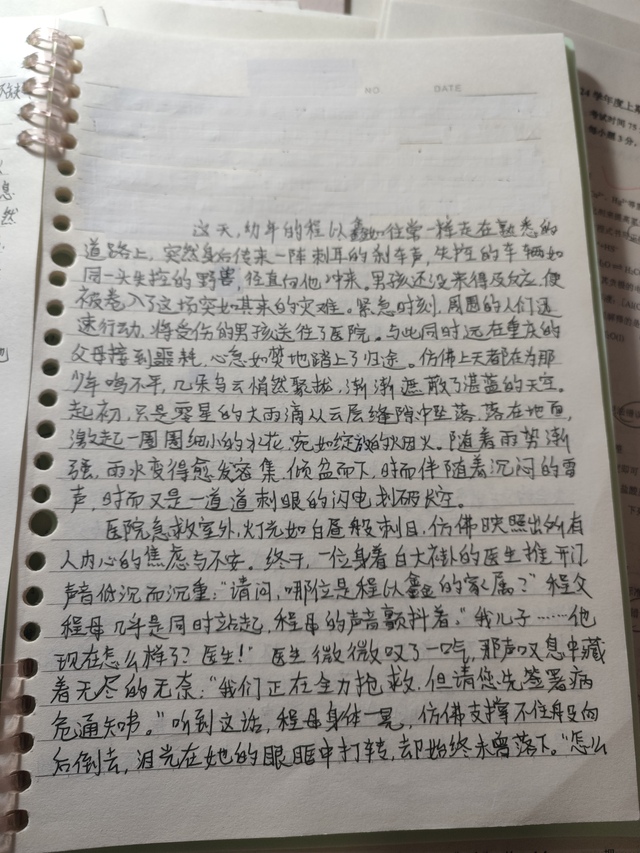 NO
DATE
这天,幼年的程以鑫如往常一样走在熟悉的
道路上,突然身后传来一阵刺耳的刹车声,失控的车辆如
同一头失控的野兽,径直向他冲来。男孩还没来得及反应,便
被卷入了这场突如其来的灾难。紧急时刻,周围的人们迅
速行动,将受伤的男孩送往了医院。与此同时远在重庆的
父母接到噩耗,心急如焚地踏上了归途。仿佛上天都在为那
少年鸣不平,几朵乌云悄然聚拢,渐渐遮散了湛蓝的天空。
起初,只是零星的大雨滴从云层缝隙中坠落,落在地面,
激起一圈圈细小的水花,宛如绽放的烟火。随着雨势渐
强,雨水变得愈发密集,倾盆而下,时而伴随着沉闷的雷
声,时而又是一道道刺眼的闪电划破长空。
医院急救室外,灯光如白昼般刺目,仿佛映照出所有
人内心的焦虑与不安。终于,一位身着白大褂的医生推开门
声音低沉而沉重:“请问,哪位是程以鑫的家属?”程父
程母几乎是同时站起,程母的声音颤抖着:“我儿子……他
现在怎么样了?医生!”医生微微叹了一口气,那声叹息中藏
着无尽的无奈:“我们正在全力抢救,但请您先签署病
危通知书。”听到这话,程母身体一晃,仿佛支撑不住般向
后倒去,泪光在她的眼眶中打转,却始终未曾落下。“怎么
24学年度上期
考试时间75
每小题3分,